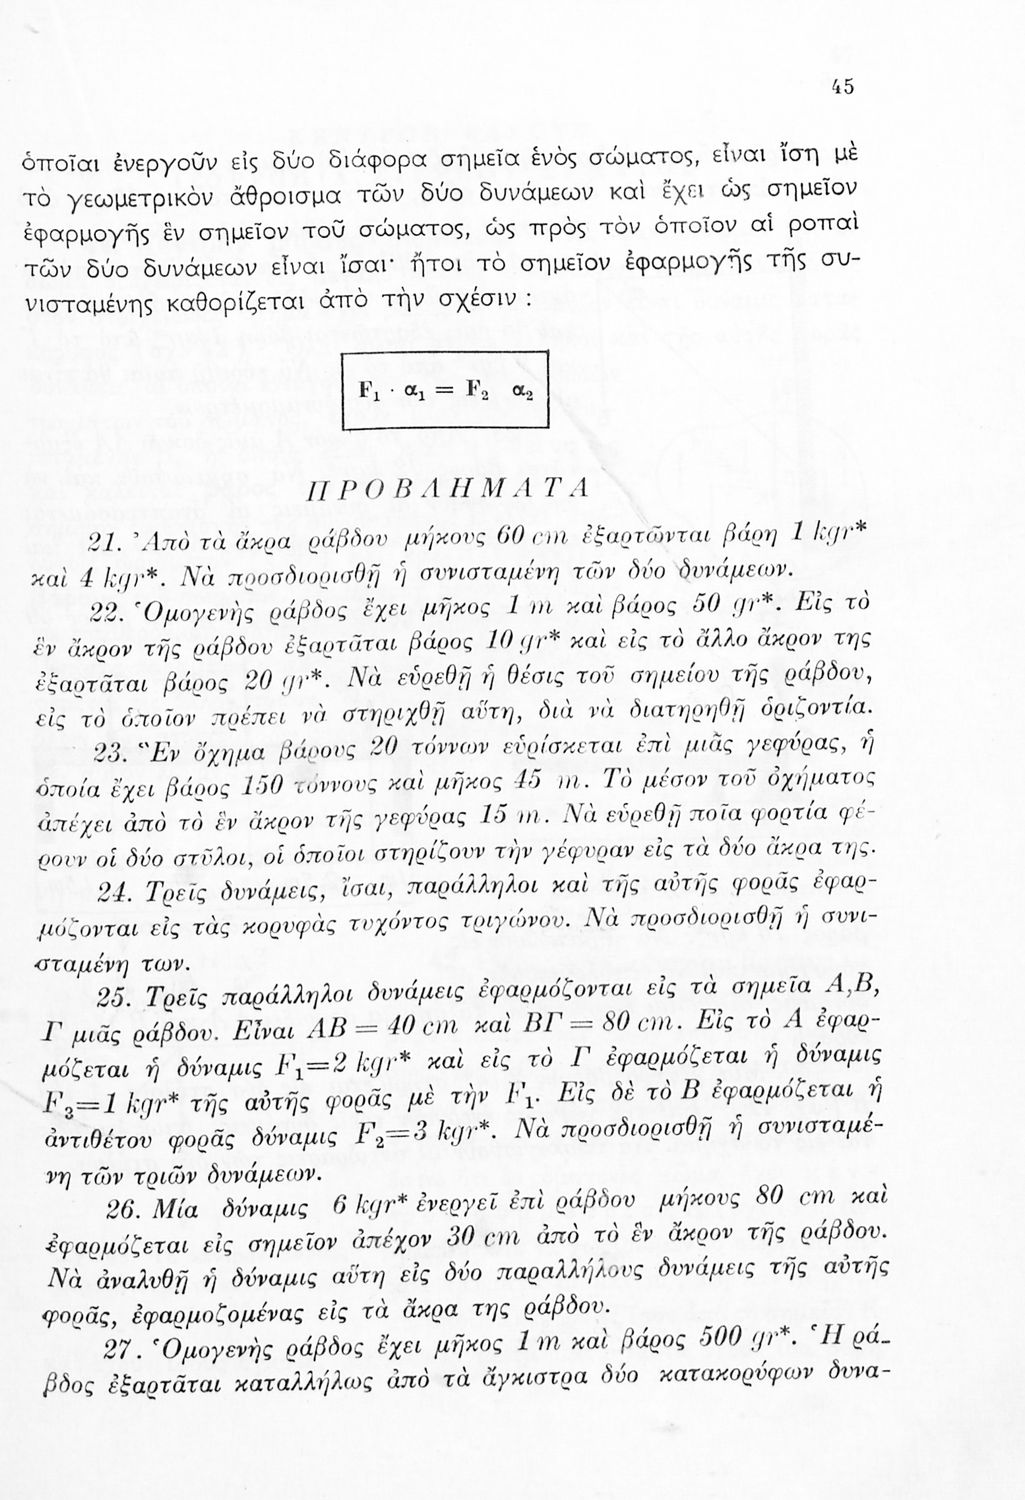 45
ὁποῖαι ἐνεργοῦν εἰς δύο διάφορα σημεῖα ἑνὸς σώματος, εἶναι ἴση μὲ
τὸ γεωμετρικὸν ἄθροισμα τῶν δύο δυνάμεων καὶ ἔχει ὡς σημεῖον
ἐφαρμογῆς ἓν σημεῖον τοῦ σώματος, ὡς πρὸς τὸν ὁποῖον αἱ ροπαὶ
τῶν δύο δυνάμεων εἶναι ἴσαι· ἤτοι τὸ σημεῖον ἐφαρμογῆς τῆς συ-
νισταμένης καθορίζεται ἀπὸ τὴν σχέσιν :
F₁ · α₁ = F₂ α₂
ΠΡΟΒΛΗΜΑΤΑ
21. Ἀπὸ τὰ ἄκρα ράβδου μήκους 60 cm ἐξαρτῶνται βάρη 1 kgr*
καὶ 4 kgr*. Νὰ προσδιορισθῇ ἡ συνισταμένη τῶν δύο δυνάμεων.
22. Ὁμογενὴς ράβδος ἔχει μῆκος 1 m καὶ βάρος 50 gr*. Εἰς τὸ
ἓν ἄκρον τῆς ράβδου ἐξαρτᾶται βάρος 10 gr* καὶ εἰς τὸ ἄλλο ἄκρον της
ἐξαρτᾶται βάρος 20 gr*. Νὰ εὑρεθῇ ἡ θέσις τοῦ σημείου τῆς ράβδου,
εἰς τὸ ὁποῖον πρέπει νὰ στηριχθῇ αὕτη, διὰ νὰ διατηρηθῇ ὁριζοντία.
23. Ἓν ὄχημα βάρους 20 τόννων εὑρίσκεται ἐπὶ μιᾶς γεφύρας, ἡ
ὁποία ἔχει βάρος 150 τόννους καὶ μῆκος 45 m. Τὸ μέσον τοῦ ὀχήματος
ἀπέχει ἀπὸ τὸ ἓν ἄκρον τῆς γεφύρας 15 m. Νὰ εὑρεθῇ ποῖα φορτία φέ-
ρουν οἱ δύο στῦλοι, οἱ ὁποῖοι στηρίζουν τὴν γέφυραν εἰς τὰ δύο ἄκρα της.
24. Τρεῖς δυνάμεις, ἴσαι, παράλληλοι καὶ τῆς αὐτῆς φορᾶς ἐφαρ-
μόζονται εἰς τὰς κορυφὰς τυχόντος τριγώνου. Νὰ προσδιορισθῇ ἡ συνι-
σταμένη των.
25. Τρεῖς παράλληλοι δυνάμεις ἐφαρμόζονται εἰς τὰ σημεῖα Α,Β,
Γ μιᾶς ράβδου. Εἶναι ΑΒ = 40 cm καὶ ΒΓ = 80 cm. Εἰς τὸ Α ἐφαρ-
μόζεται ἡ δύναμις F₁=2 kgr* καὶ εἰς τὸ Γ ἐφαρμόζεται ἡ δύναμις
F₃=1 kgr* τῆς αὐτῆς φορᾶς μὲ τὴν F₁. Εἰς δὲ τὸ Β ἐφαρμόζεται ἡ
ἀντιθέτου φορᾶς δύναμις F₂=3 kgr*. Νὰ προσδιορισθῇ ἡ συνισταμέ-
νη τῶν τριῶν δυνάμεων.
26. Μία δύναμις 6 kgr* ἐνεργεῖ ἐπὶ ράβδου μήκους 80 cm καὶ
ἐφαρμόζεται εἰς σημεῖον ἀπέχον 30 cm ἀπὸ τὸ ἓν ἄκρον τῆς ράβδου.
Νὰ ἀναλυθῇ ἡ δύναμις αὕτη εἰς δύο παραλλήλους δυνάμεις τῆς αὐτῆς
φορᾶς, ἐφαρμοζομένας εἰς τὰ ἄκρα της ράβδου.
27. Ὁμογενὴς ράβδος ἔχει μῆκος 1 m καὶ βάρος 500 gr*. Ἡ ρά-
βδος ἐξαρτᾶται καταλλήλως ἀπὸ τὰ ἄγκιστρα δύο κατακορύφων δυνα-